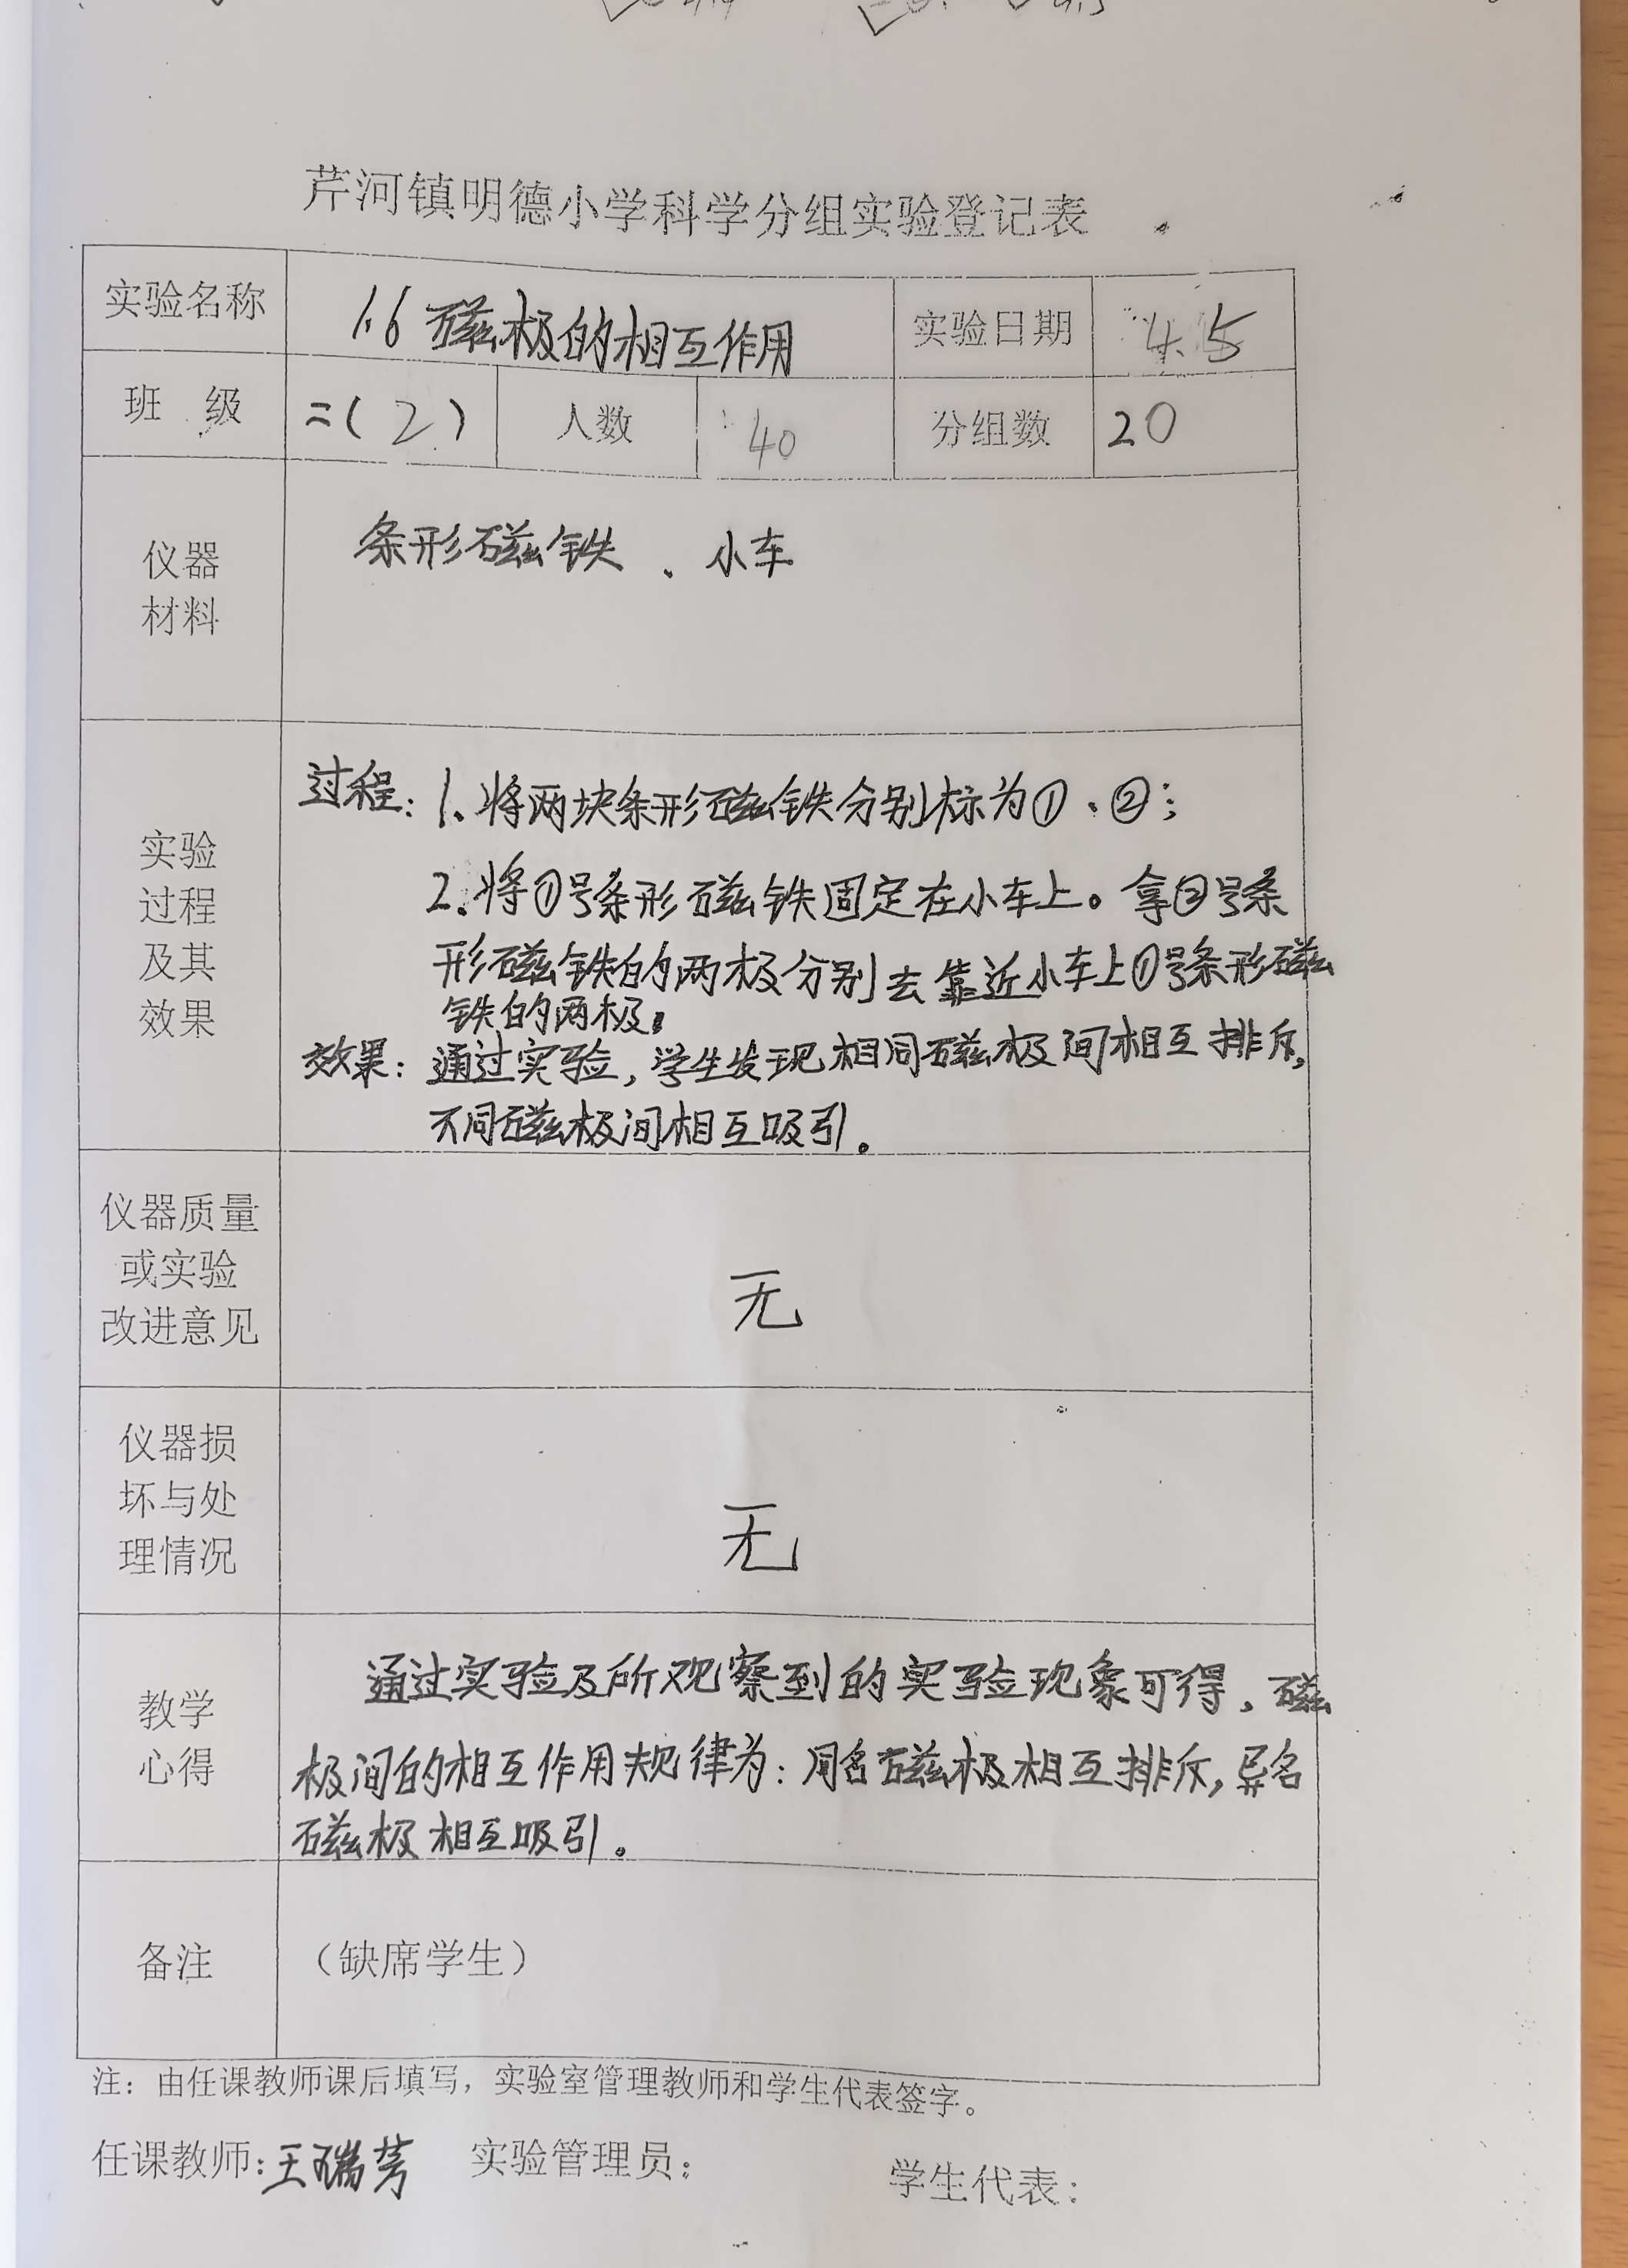 芹河镇明德小学科学分组实验登记表
实验名称 1.6 磁极的相互作用 实验日期 4.15
班 级 二(2) 人数 40 分组数 20
仪器
材料
条形磁铁、小车
实验
过程
及其
效果
过程：1、将两块条形磁铁分别标为①、②；
2、将①号条形磁铁固定在小车上。拿②号条
形磁铁的两极分别去靠近小车上①号条形磁
铁的两极。
效果：通过实验，学生发现相同磁极间相互排斥，
不同磁极间相互吸引。
仪器质量
或实验
改进意见
无
仪器损
坏与处
理情况
无
教学
心得
通过实验及所观察到的实验现象可得，磁
极间的相互作用规律为：同名磁极相互排斥，异名
磁极相互吸引。
备注
（缺席学生）
注：由任课教师课后填写，实验室管理教师和学生代表签字。
任课教师：王瑞芳 实验管理员： 学生代表：